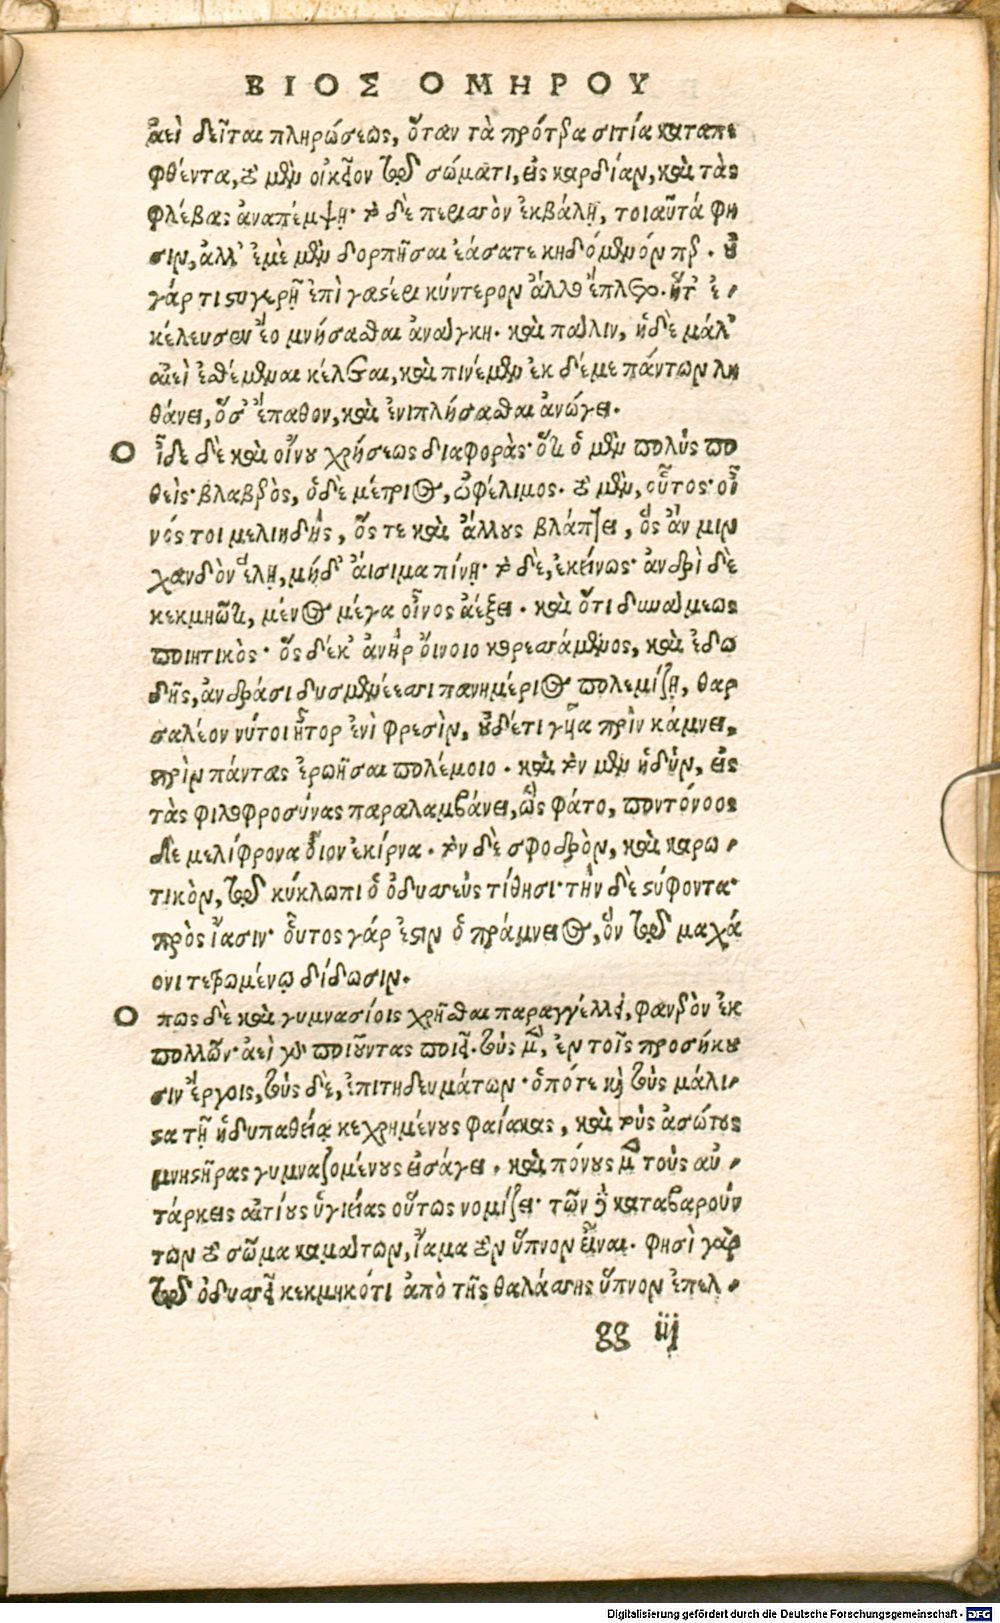 ΒΙΟΣ ΟΜΗΡΟΥ
ἀεὶ δεῖται πληρώσεως, ὅταν τὰ πρότερα σιτία καταπε
φθέντα, τὸ μὲν οἰκεῖον τῷ σώματι, εἰς καρδίαν, καὶ τὰς
φλέβας ἀναπέμψῃ· τὸ δὲ περιττὸν ἐκβάλῃ, τοιαῦτά φη
σιν, ἀλλ' ἐμὲ μὲν δορπῆσαι ἐάσατε κηδόμενόν περ. οὐ
γάρ τι στυγερῇ ἐπὶ γαστέρι κύντερον ἄλλο ἔπλετο. ἥτ' ἐ-
κέλευσεν ἕο μνήσασθαι ἀνάγκη. καὶ πάλιν, ἡ δὲ μάλ'
αἰεὶ ἐσθέμεναι κέλεται, καὶ πινέμεν ἐκ δέ με πάντων λη
θάνει, ὅσ' ἔπαθον, καὶ ἐνιπλήσασθαι ἀνώγει.
Ο ἶδε δὲ καὶ οἴνου χρήσεως διαφοράς· ὅτι ὁ μὲν πολὺς πο
θεὶς· βλαβερὸς, ὁ δὲ μέτριος, ὠφέλιμος. τὸ μὲν, οὗτος· οἶ
νός τοι μελιηδὴς, ὅς τε καὶ ἄλλους βλάπτει, ὃς ἄν μιν
χανδὸν ἕλῃ, μήδ' αἴσιμα πίνῃ· τὸ δὲ, ἐκείνως· ἀνδρὶ δὲ
κεκμηῶτι, μένος μέγα οἶνος ἀέξει. καὶ ὅτι δυνάμεως
ποιητικός· ὃς δέ κ' ἀνὴρ οἴνοιο κορεσσάμενος, καὶ ἐδω
δῆς, ἀνδράσι δυσμενέεσσι πανημέριος πολεμίζῃ, θαρ
σαλέον νύ τοι ἦτορ ἐνὶ φρεσὶν, οὐδέ τι γῦια πρὶν κάμνει,
πρὶν πάντας ἐρωῆσαι πολέμοιο. καὶ τὸν μὲν ἡδὺν, εἰς
τὰς φιλοφροσύνας παραλαμβάνει, ὣς φάτο, ποντόνοος
δὲ μελίφρονα οἶνον ἐκίρνα. τὸν δὲ σφοδρὸν, καὶ καρω-
τικὸν, τῷ κύκλωπι ὁ ὀδυσσεὺς τίθησι· τὴν δὲ στύφοντα·
πρὸς ἴασιν· οὗτος γάρ ἐστιν ὁ πράμνειος, ὃν τῷ μαχά
ονι τετρωμένῳ δίδωσιν.
Ο πως δὲ καὶ γυμνασίοις χρῆσθαι παραγγέλλει, φανερὸν ἐκ
πολλῶν· ἀεὶ γὰρ ποιοῦντας ποιεῖ. τοὺς μὲν, ἐν τοῖς προσήκου
σιν ἔργοις, τοὺς δὲ, ἐπιτηδευμάτων· ὁπότε καὶ τοὺς μάλι-
στα τῇ ἡδυπαθείᾳ κεχρημένους φαίακας, καὶ τοὺς ἀσώτους
μνηστῆρας γυμναζομένους εἰσάγει. καὶ πόνους μὲν τοὺς αὐ-
τάρκεις αἰτίους ὑγιείας οὕτως νομίζει· τῶν δὲ καταβαρούν
των τὸ σῶμα καμάτων, ἴαμα τὸν ὕπνον εἶναι. φησὶ γὰρ
τῷ ὀδυσσεῖ κεκμηκότι ἀπὸ τῆς θαλάσσης ὕπνον ἐπελ-
gg iij
Digitalisierung gefördert durch die Deutsche Forschungsgemeinschaft - DFG